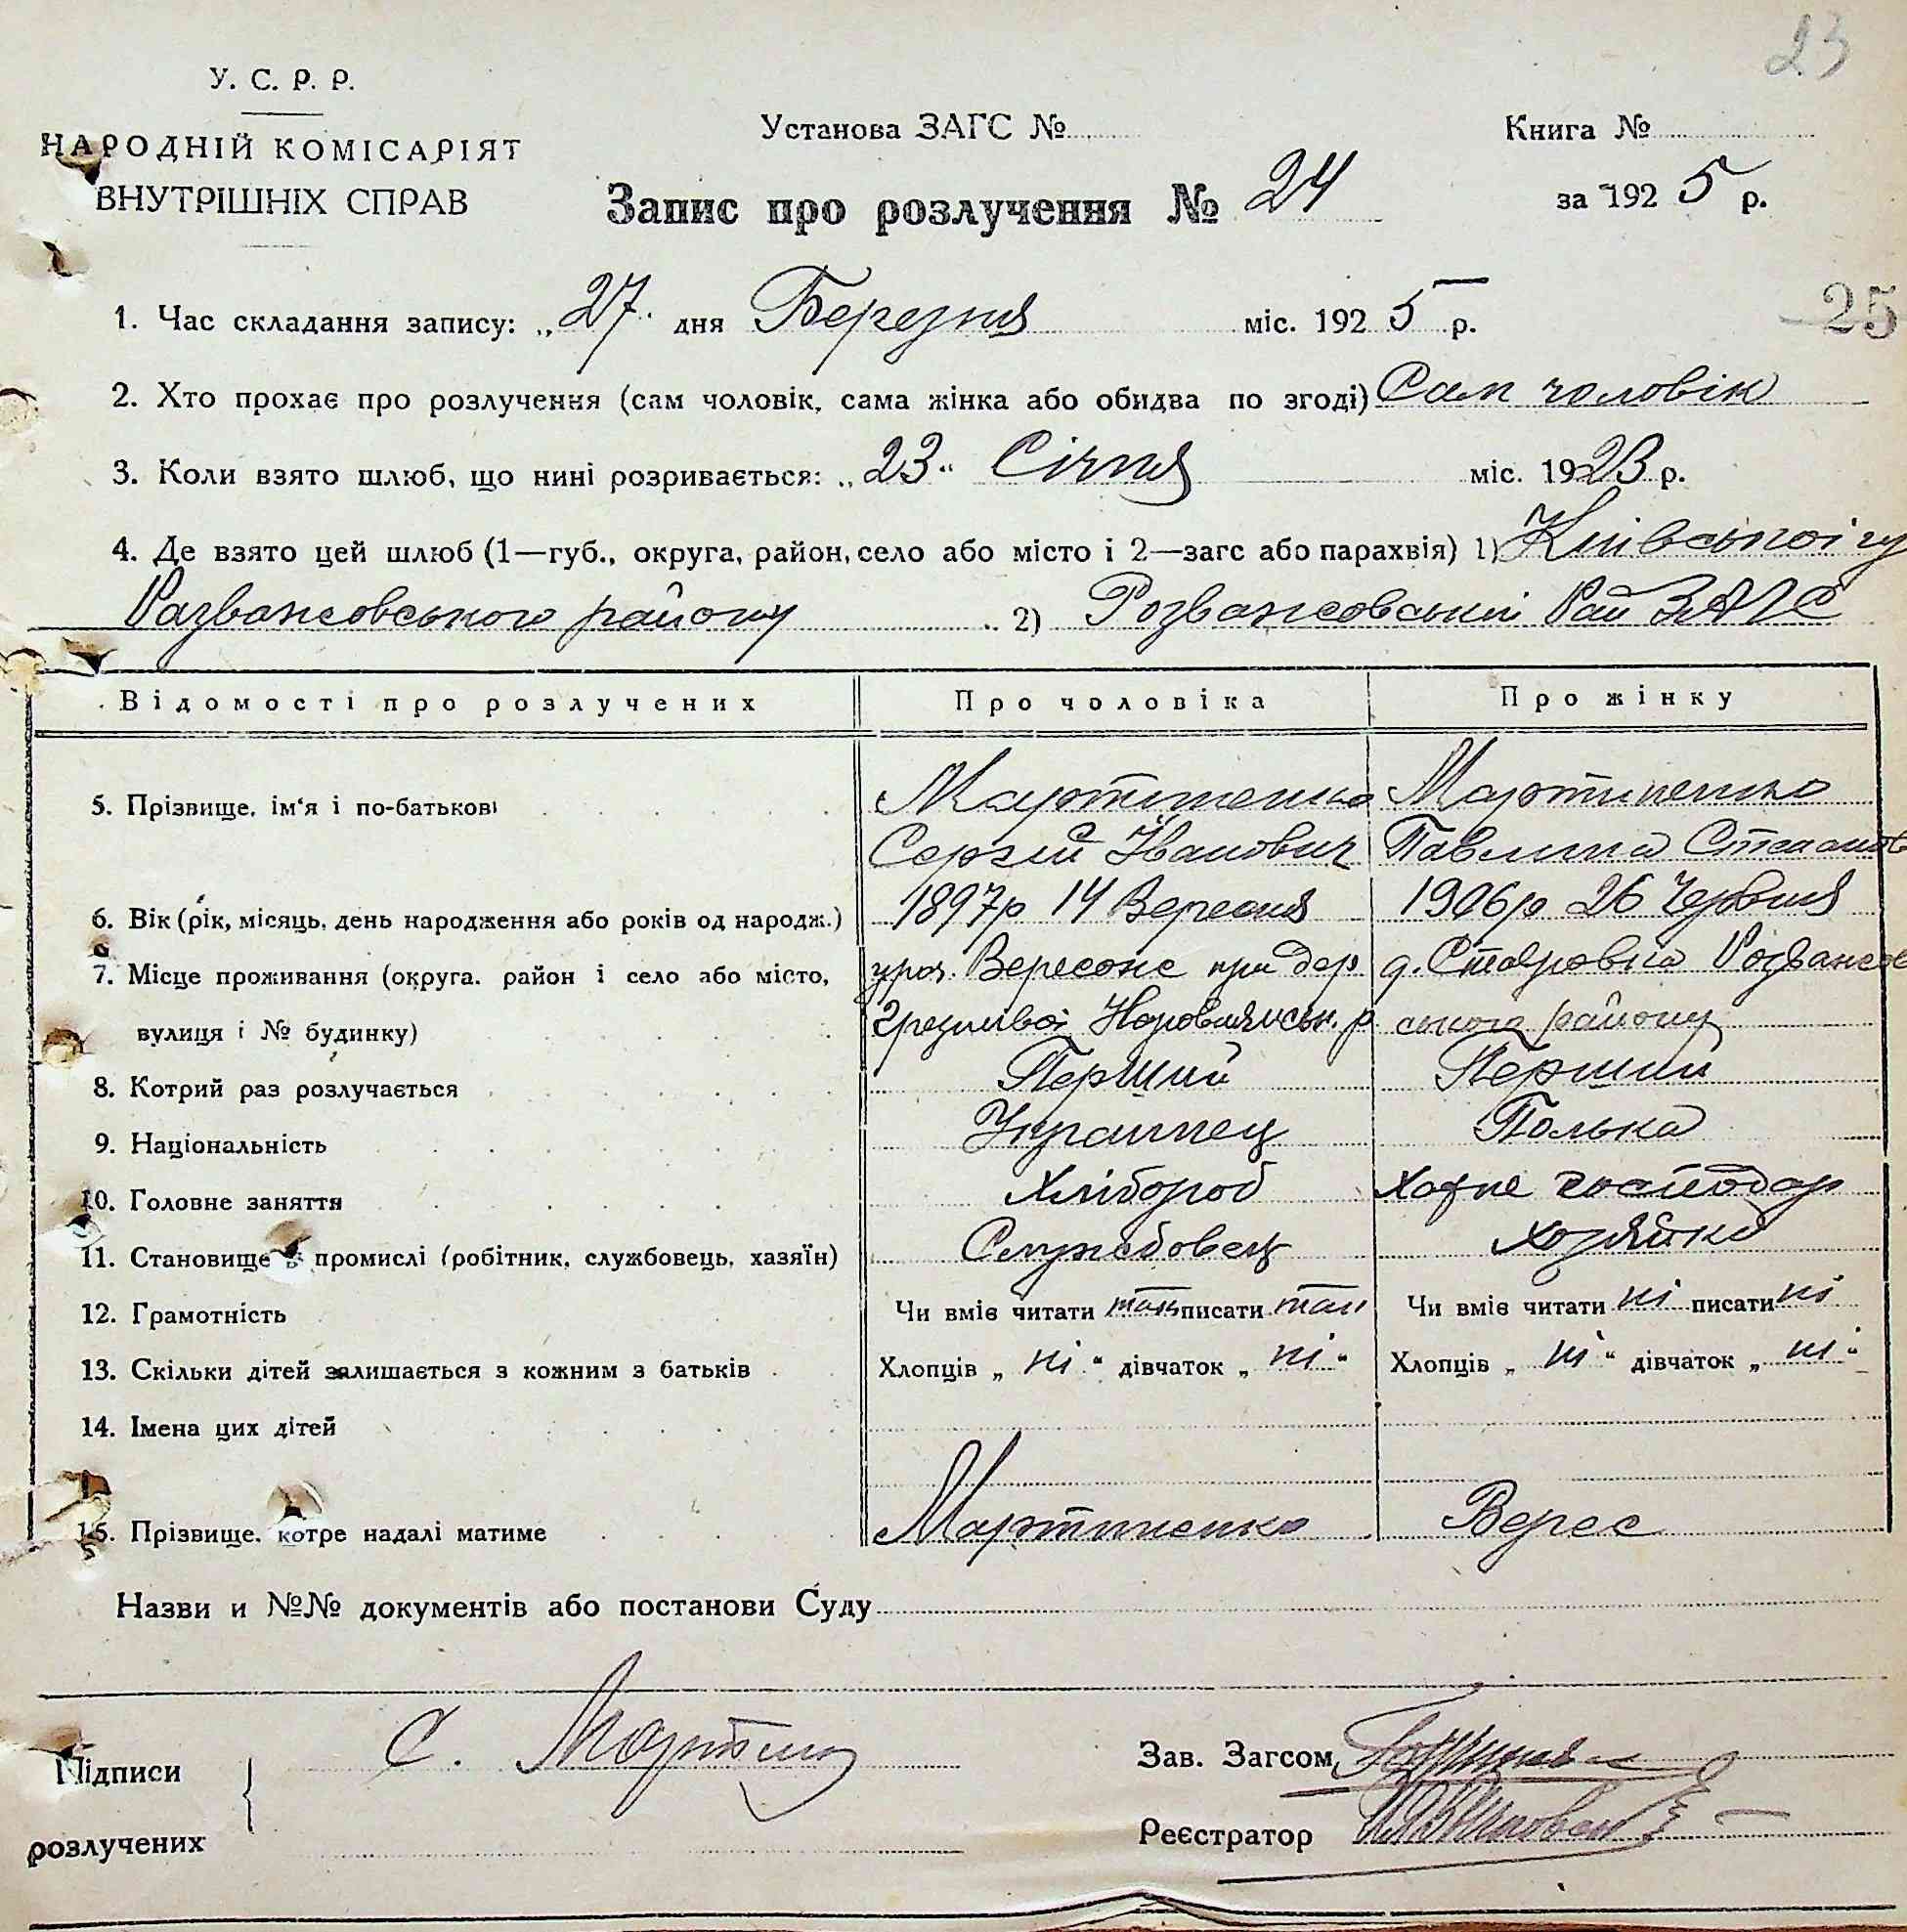 23
У. С. Р. Р.
НАРОДНІЙ КОМІСАРІЯТ
ВНУТРІШНІХ СПРАВ
Установа ЗАГС №
Книга №
Запис про розлучення № 24
за 1925 р.
1. Час складання запису: „27" дня Березня міс. 1925 р.
25
2. Хто прохає про розлучення (сам чоловік, сама жінка або обидва по згоді) Сам чоловік
3. Коли взято шлюб, що нині розривається: „23" Січня міс. 1923 р.
4. Де взято цей шлюб (1—губ., округа, район, село або місто і 2—загс або парахвія) 1) Київської гу
Розважовського району 2) Розважовський Рай ЗАГС
Відомості про розлучених Про чоловіка Про жінку
5. Прізвище, ім'я і по-батькові Мартиненко Мартиненко
Сергій Іванович Павлина Степанов
6. Вік (рік, місяць, день народження або років од народж.) 1897р 14 Вересня 1906р 26 Червня
7. Місце проживання (округа, район і село або місто, уроч. при дер д. Розважов
вулиця і № будинку) Наровлянськ. р ського району
8. Котрий раз розлучається Перший Перший
9. Національність Українец Полька
10. Головне заняття Хлібороб Хатне господар
11. Становище в промислі (робітник, службовець, хазяїн) Службовец хозяйка
12. Грамотність Чи вміє читати так писати так Чи вміє читати ні писати ні
13. Скільки дітей залишається з кожним з батьків Хлопців „ні" дівчаток „ні" Хлопців „ні" дівчаток „ні"
14. Імена цих дітей
15. Прізвище, котре надалі матиме Мартиненко Верес
Назви и №№ документів або постанови Суду
Підписи С. Мартин Зав. Загсом
розлучених Реєстратор